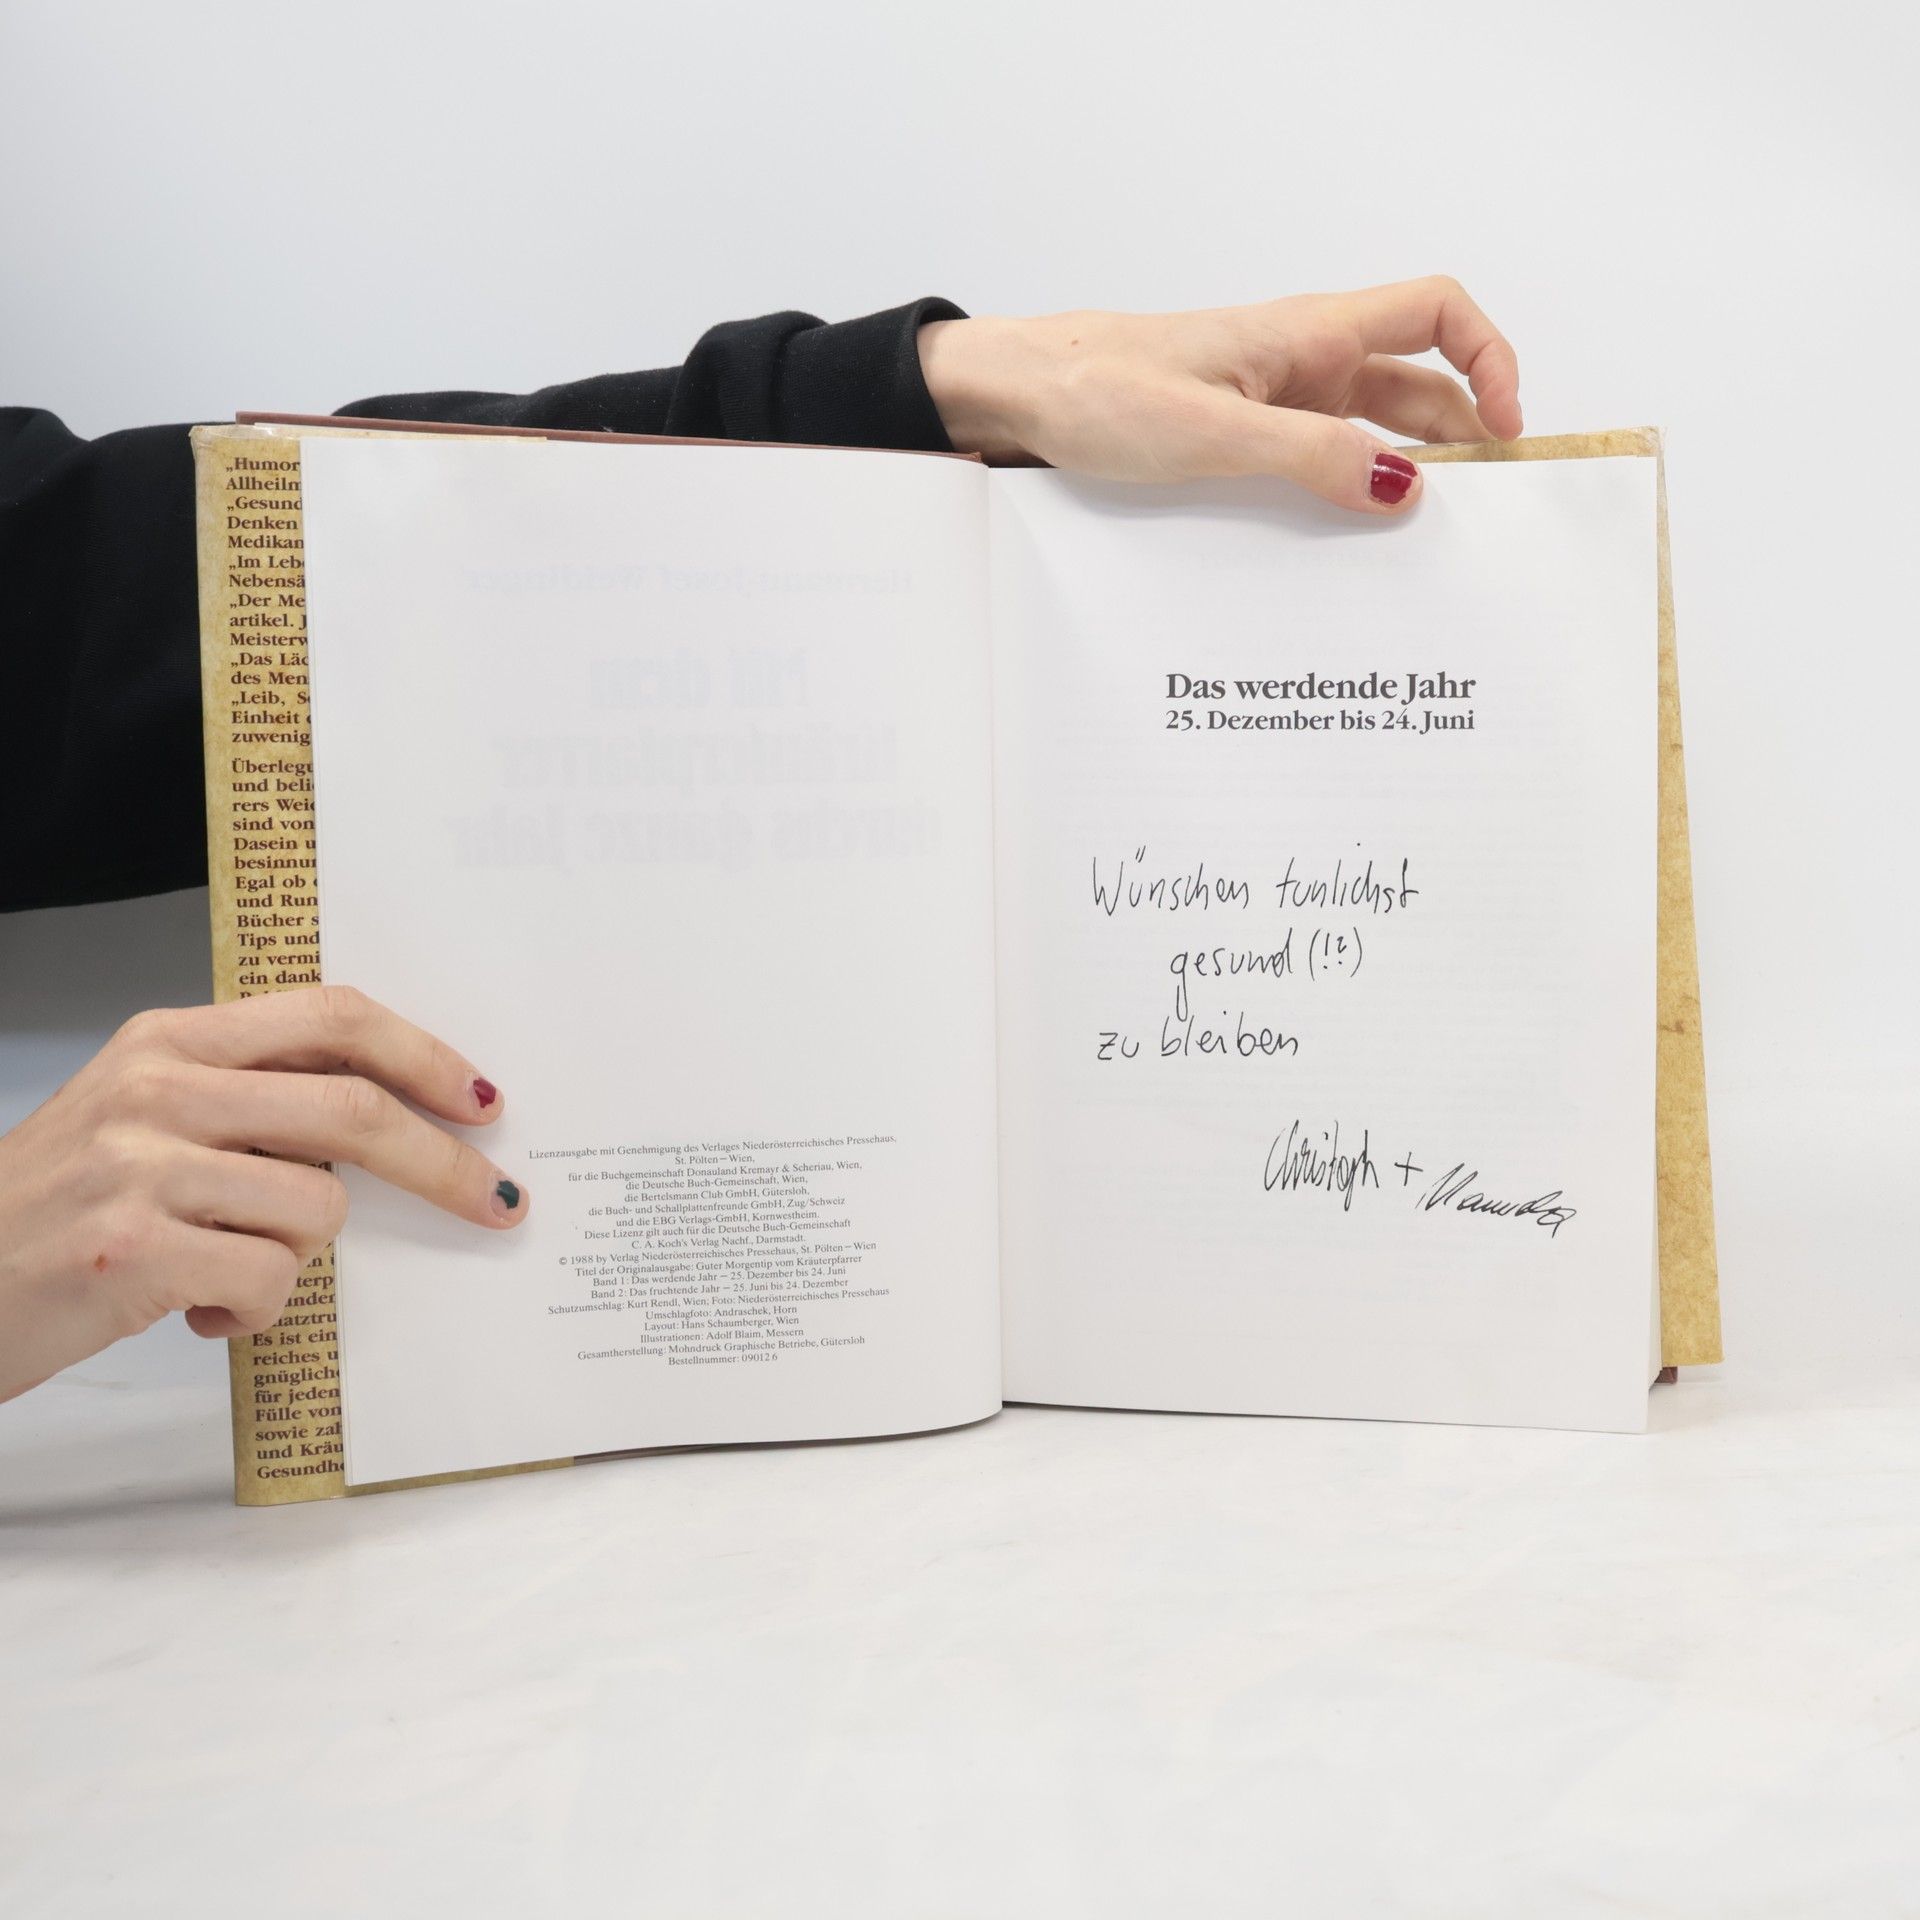 „Humor
Allheilm
„Gesund
Denken
Medikan
„Im Leb
Nebensä
„Der Me
artikel. J
Meisterw
„Das Läc
des Men
„Leib, S
Einheit
zuwenig
Überlegu
und beli
rers Weid
sind von
Dasein u
besinnun
Egal ob
und Run
Bücher s
Tips und
zu vermi
ein dank
Es ist ein
reiches u
gnüglich
für jeden
Fülle von
sowie zah
und Kräu
Gesundhe
Lizenzausgabe mit Genehmigung des Verlages Niederösterreichisches Pressehaus,
St. Pölten – Wien,
für die Buchgemeinschaft Donauland Kremayr & Scheriau, Wien,
die Deutsche Buch-Gemeinschaft, Wien,
die Bertelsmann Club GmbH, Gütersloh,
die Buch- und Schallplattenfreunde GmbH, Zug/Schweiz
und die EBG Verlags-GmbH, Kornwestheim.
Diese Lizenz gilt auch für die Deutsche Buch-Gemeinschaft
C. A. Koch's Verlag Nachf., Darmstadt.
© 1988 by Verlag Niederösterreichisches Pressehaus, St. Pölten – Wien
Titel der Originalausgabe: Guter Morgentip vom Kräuterpfarrer
Band 1: Das werdende Jahr – 25. Dezember bis 24. Juni
Band 2: Das fruchtende Jahr – 25. Juni bis 24. Dezember
Schutzumschlag: Kurt Rendl, Wien; Foto: Niederösterreichisches Pressehaus
Umschlagfoto: Andraschek, Horn
Layout: Hans Schaumberger, Wien
Illustrationen: Adolf Blaim, Messern
Gesamtherstellung: Mohndruck Graphische Betriebe, Gütersloh
Bestellnummer: 09012 6
Das werdende Jahr
25. Dezember bis 24. Juni
Wünschen tunlichst
gesund (!?)
zu bleiben
Christoph +